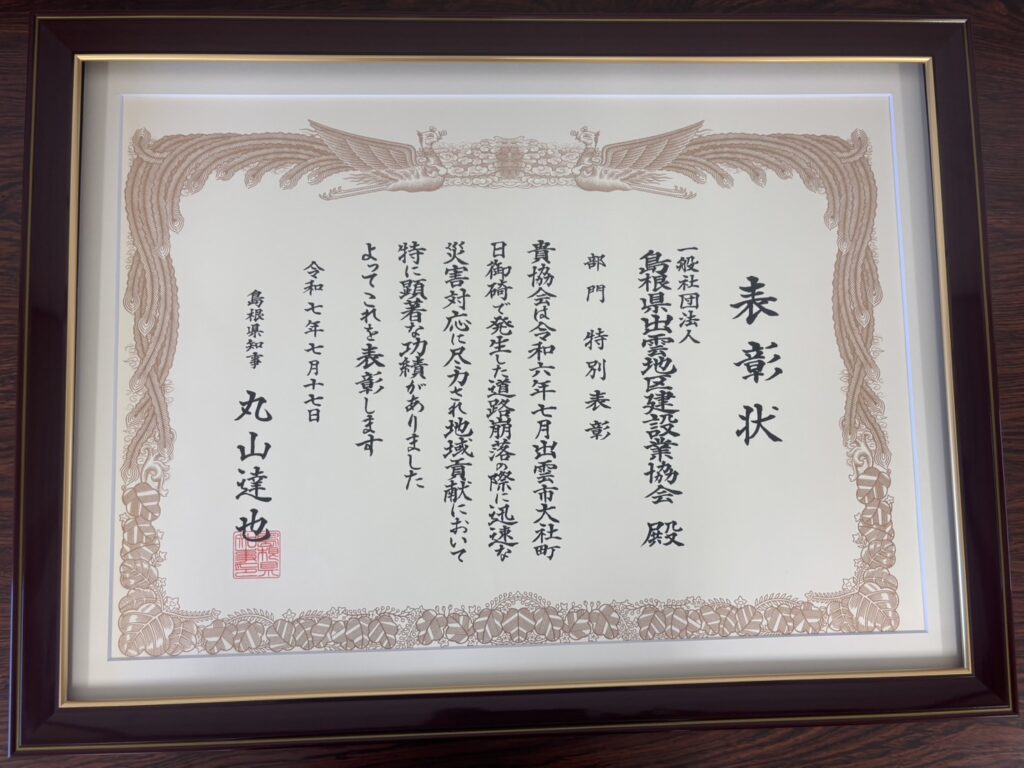 表彰状
一般社団法人
島根県出雲地区建設業協会 殿
部門 特別表彰
貴協会は令和六年七月出雲市大社町
日御碕で発生した道路崩落の際に迅速な
災害対応に尽力され地域貢献において
特に顕著な功績がありました
よってこれを表彰します
令和七年七月十七日
島根県知事 丸山達也